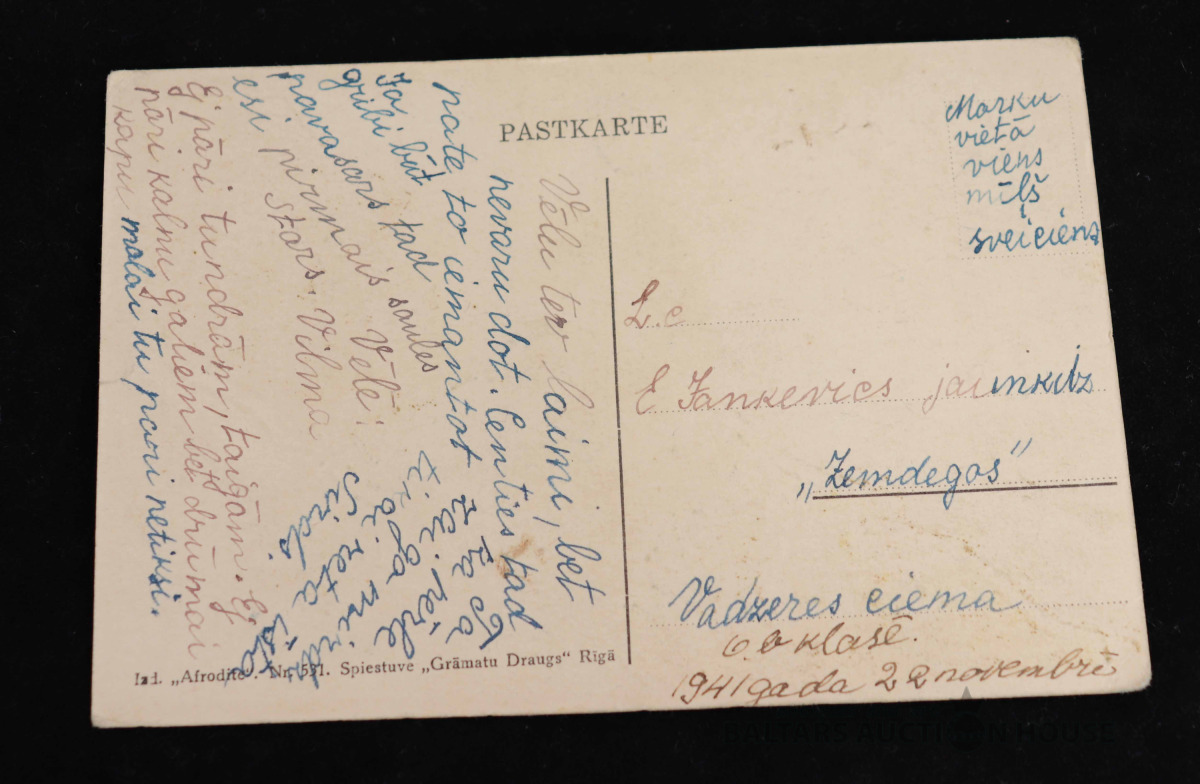 PASTKARTE
Marku
vietā
viens
mīļš
sveiciens
Vēlu tev laimi, bet
nevaru dot. Centies tad
pate to iemantot
Ja
gribi būt tad
pavasars saules
esi pirmais
stars. Vēlē:
Vilma
Ej pāri tundrām, taigām. Ej
pāri kalnu galiem bet drūmai
kapu malai tu pari netiksi.
Tā sā
zaigo
reta
sirds
L.c
E Jankevics jaunkdz
„Zemdegas"
Vadzeres ciema
6. b klasē.
1941 gada 22 novembrī
Izd. „Afrodite". Nr. 531. Spiestuve „Grāmatu Draugs" Rīgā
BALTARS AUCTION HOUSE